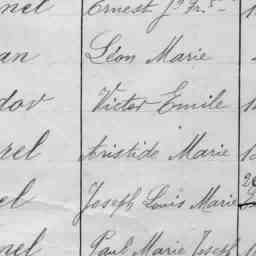 nel Ernest Jn Fr
an Léon Marie
dov Victor Emile
rel Aristide Marie
el Joseph Louis Marie
nel Paul Marie Joseph